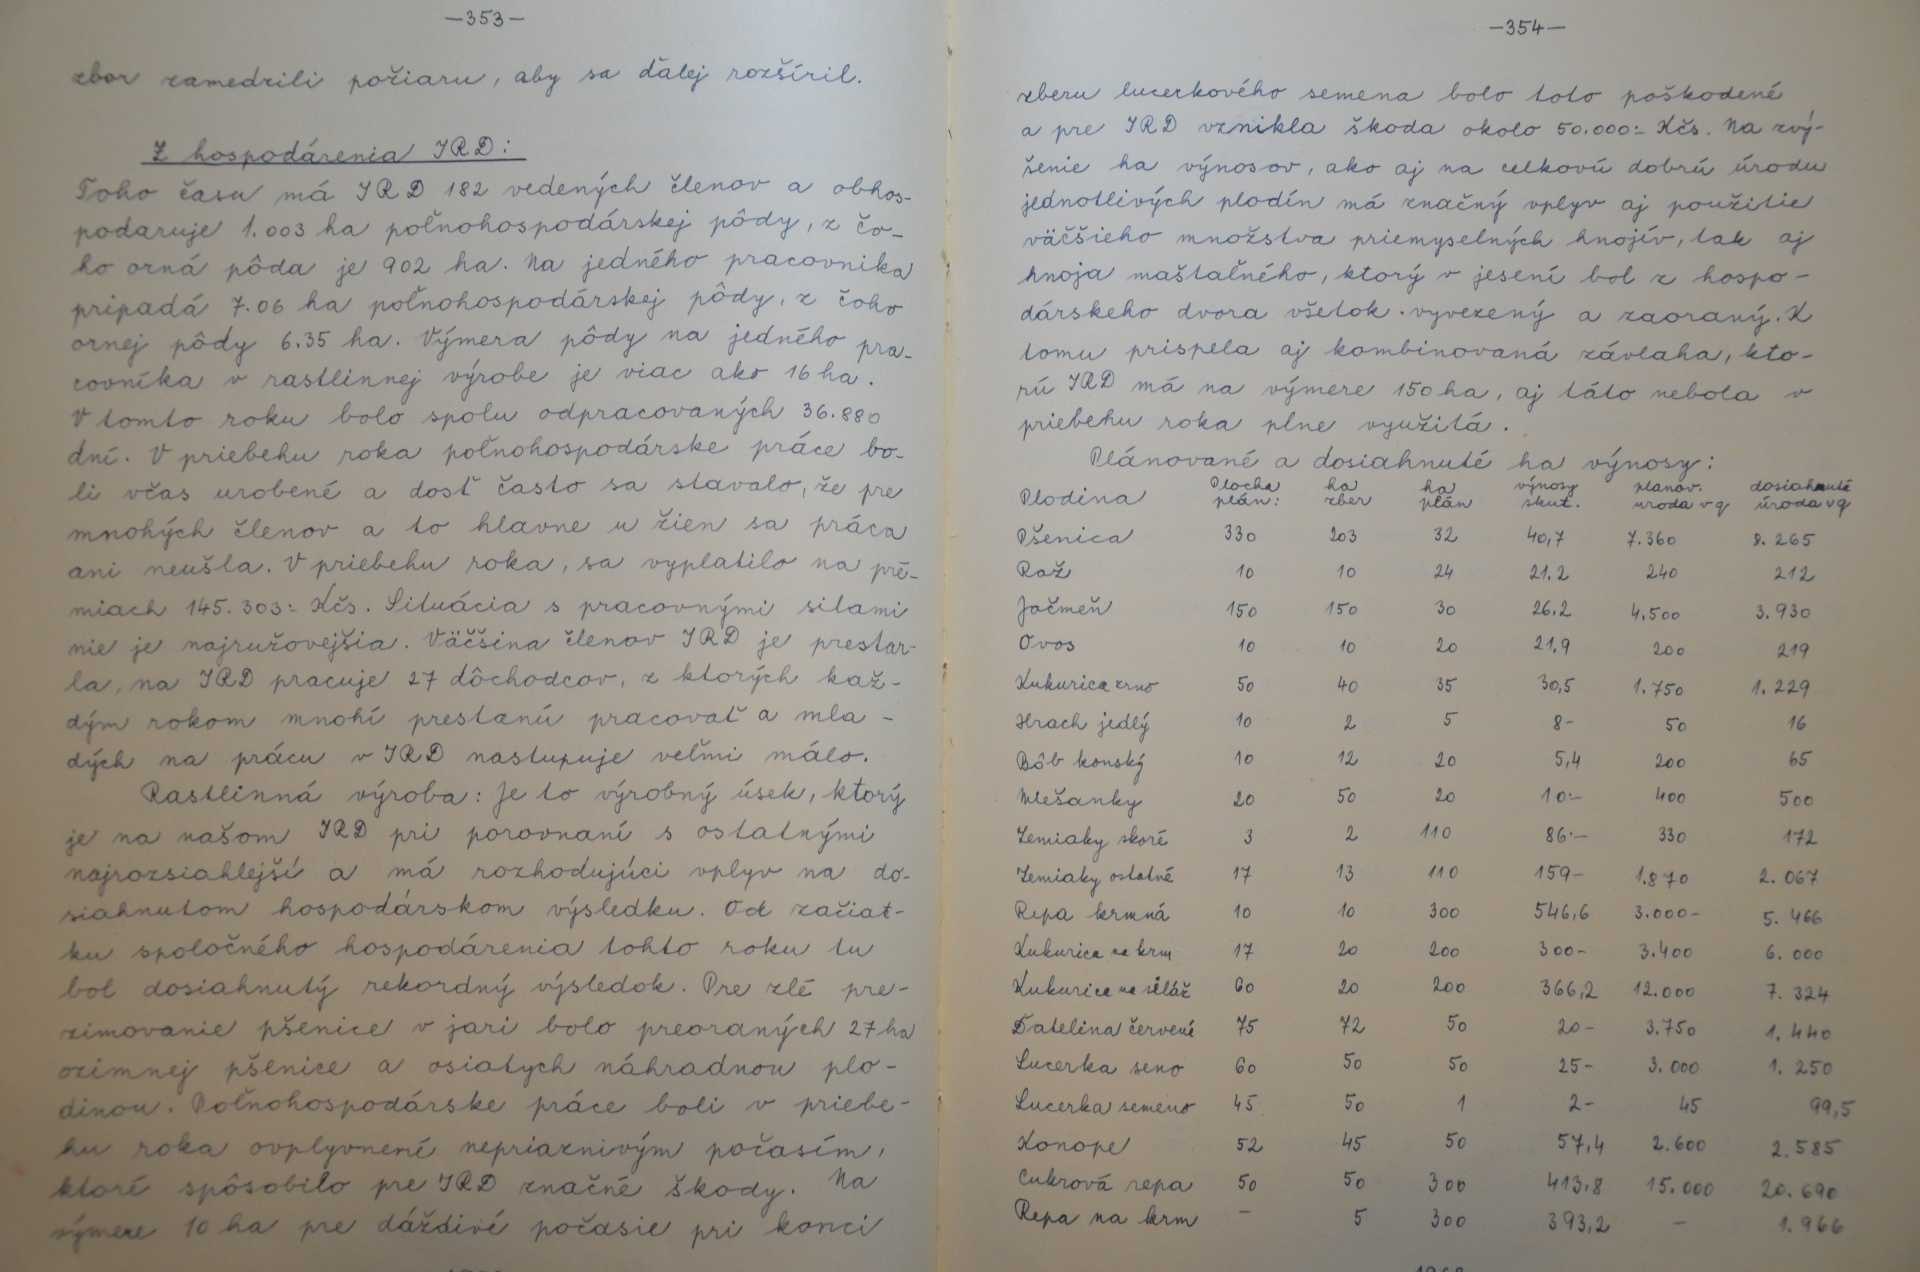 —353—
zbor zamedzili požiaru, aby sa ďalej rozšíril.
Z hospodárenia JRD:
Toho času má JRD 182 vedených členov a obhos-
podaruje 1.003 ha poľnohospodárskej pôdy, z čo-
ho orná pôda je 902 ha. Na jedného pracovnika
pripadá 7.06 ha poľnohospodárskej pôdy, z čoho
ornej pôdy 6.35 ha. Výmera pôdy na jedného pra-
covníka v rastlinnej výrobe je viac ako 16 ha.
V tomto roku bolo spolu odpracovaných 36.880
dní. V priebehu roka poľnohospodárske práce bo-
li včas urobené a dosť často sa stavalo, že pre
mnohých členov a to hlavne u žien sa práca
ani neušla. V priebehu roka, sa vyplatilo na pré-
miach 145.303:- Kčs. Situácia s pracovnými silami
nie je najružovejšia. Väčšina členov JRD je prestar-
la, na JRD pracuje 27 dôchodcov, z ktorých kaž-
dým rokom mnohí prestanú pracovať a mla-
dých na prácu v JRD nastupuje veľmi málo.
Rastlinná výroba: Je to výrobný úsek, ktorý
je na našom JRD pri porovnaní s ostatnými
najrozsiahlejší a má rozhodujúci vplyv na do-
siahnutom hospodárskom výsledku. Od začiat-
ku spoločného hospodárenia tohto roku tu
bol dosiahnutý rekordný výsledok. Pre zlé pre-
zimovanie pšenice v jari bolo preoraných 27 ha
ozimnej pšenice a osiatych náhradnou plo-
dinou. Poľnohospodárske práce boli v priebe-
hu roka ovplyvnení nepriaznivým počasím,
ktoré spôsobilo pre JRD značné škody. Na
výmere 10 ha pre dáždivé počasie pri konci
—354—
zberu lucerkového semena bolo toto poškodené
a pre JRD vznikla škoda okolo 50.000:- Kčs. Na zvý-
šenie ha výnosov, ako aj na celkovú dobrú úrodu
jednotlivých plodín má značný vplyv aj použitie
väčšieho množstva priemyselných hnojív, tak aj
hnoja maštaľného, ktorý v jesení bol z hospo-
dárskeho dvora všetok vyvezený a zaoraný. K
tomu prispela aj kombinovaná závlaha, kto-
rú JRD má na výmere 150 ha, aj táto nebola v
priebehu roka plne využitá.
Plánované a dosiahnuté ha výnosy:
Plodina Plocha plán: ha zber ha plán výnosy skut. planov. uroda v q dosiahnuté úroda v q
Pšenica 330 203 32 40,7 7.360 8.265
Raž 10 10 24 21.2 240 212
Jačmeň 150 150 30 26.2 4.500 3.930
Ovos 10 10 20 21,9 200 219
Kukurica zrno 50 40 35 30,5 1.750 1.229
Hrach jedlý 10 2 5 8- 50 16
Bôb konský 10 12 20 5,4 200 65
Miešanky 20 50 20 10:- 400 500
Zemiaky skoré 3 2 110 86:- 330 172
Zemiaky ostatné 17 13 110 159- 1.870 2.067
Repa krmná 10 10 300 546,6 3.000- 5.466
Kukurica na krm 17 20 200 300- 3.400 6.000
Kukurica na siláž 60 20 200 366,2 12.000 7.324
Ďatelina červené 75 72 50 20- 3.750 1.440
Lucerka seno 60 50 50 25- 3.000 1.250
Lucerka semeno 45 50 1 2- 45 99,5
Konope 52 45 50 57,4 2.600 2.585
Cukrová repa 50 50 300 413,8 15.000 20.690
Repa na krm - 5 300 393,2 - 1.966